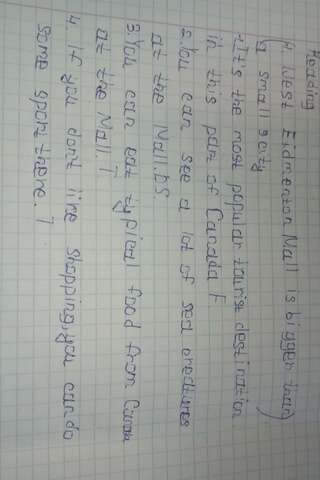 Reading
(1. West Eidmenton Mall is bigger than)
a small scity
1.It's the most popular tourist destination
in this part of Canada F
2.You can see a lot of sea creatures
at the Mall.DS.
3.You can eat typical food from Canada
at the Mall. T
4. If you don't like shopping, you can do
some sport there. T